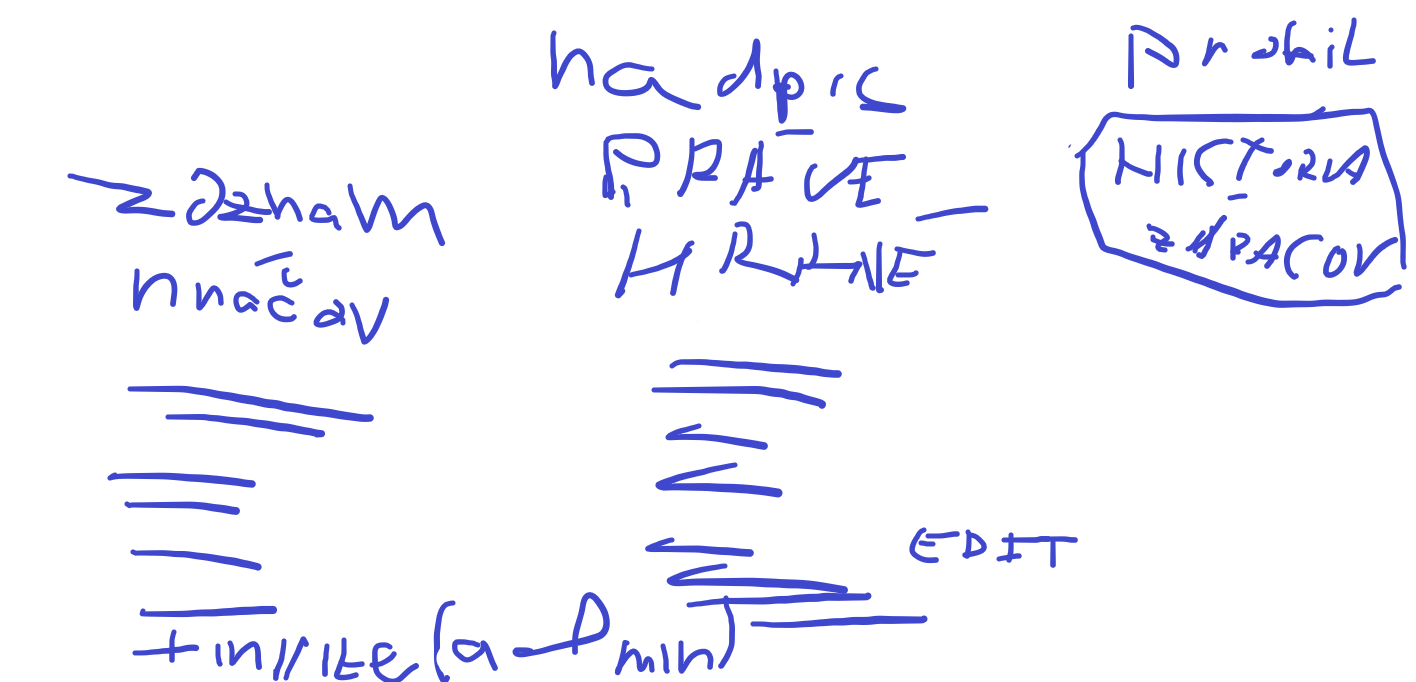 zoznam
hracov
nadpis
PRAVE
HRANE
profil
HISTORIA
ZAPASOV
EDIT
+ INVITE (admin)